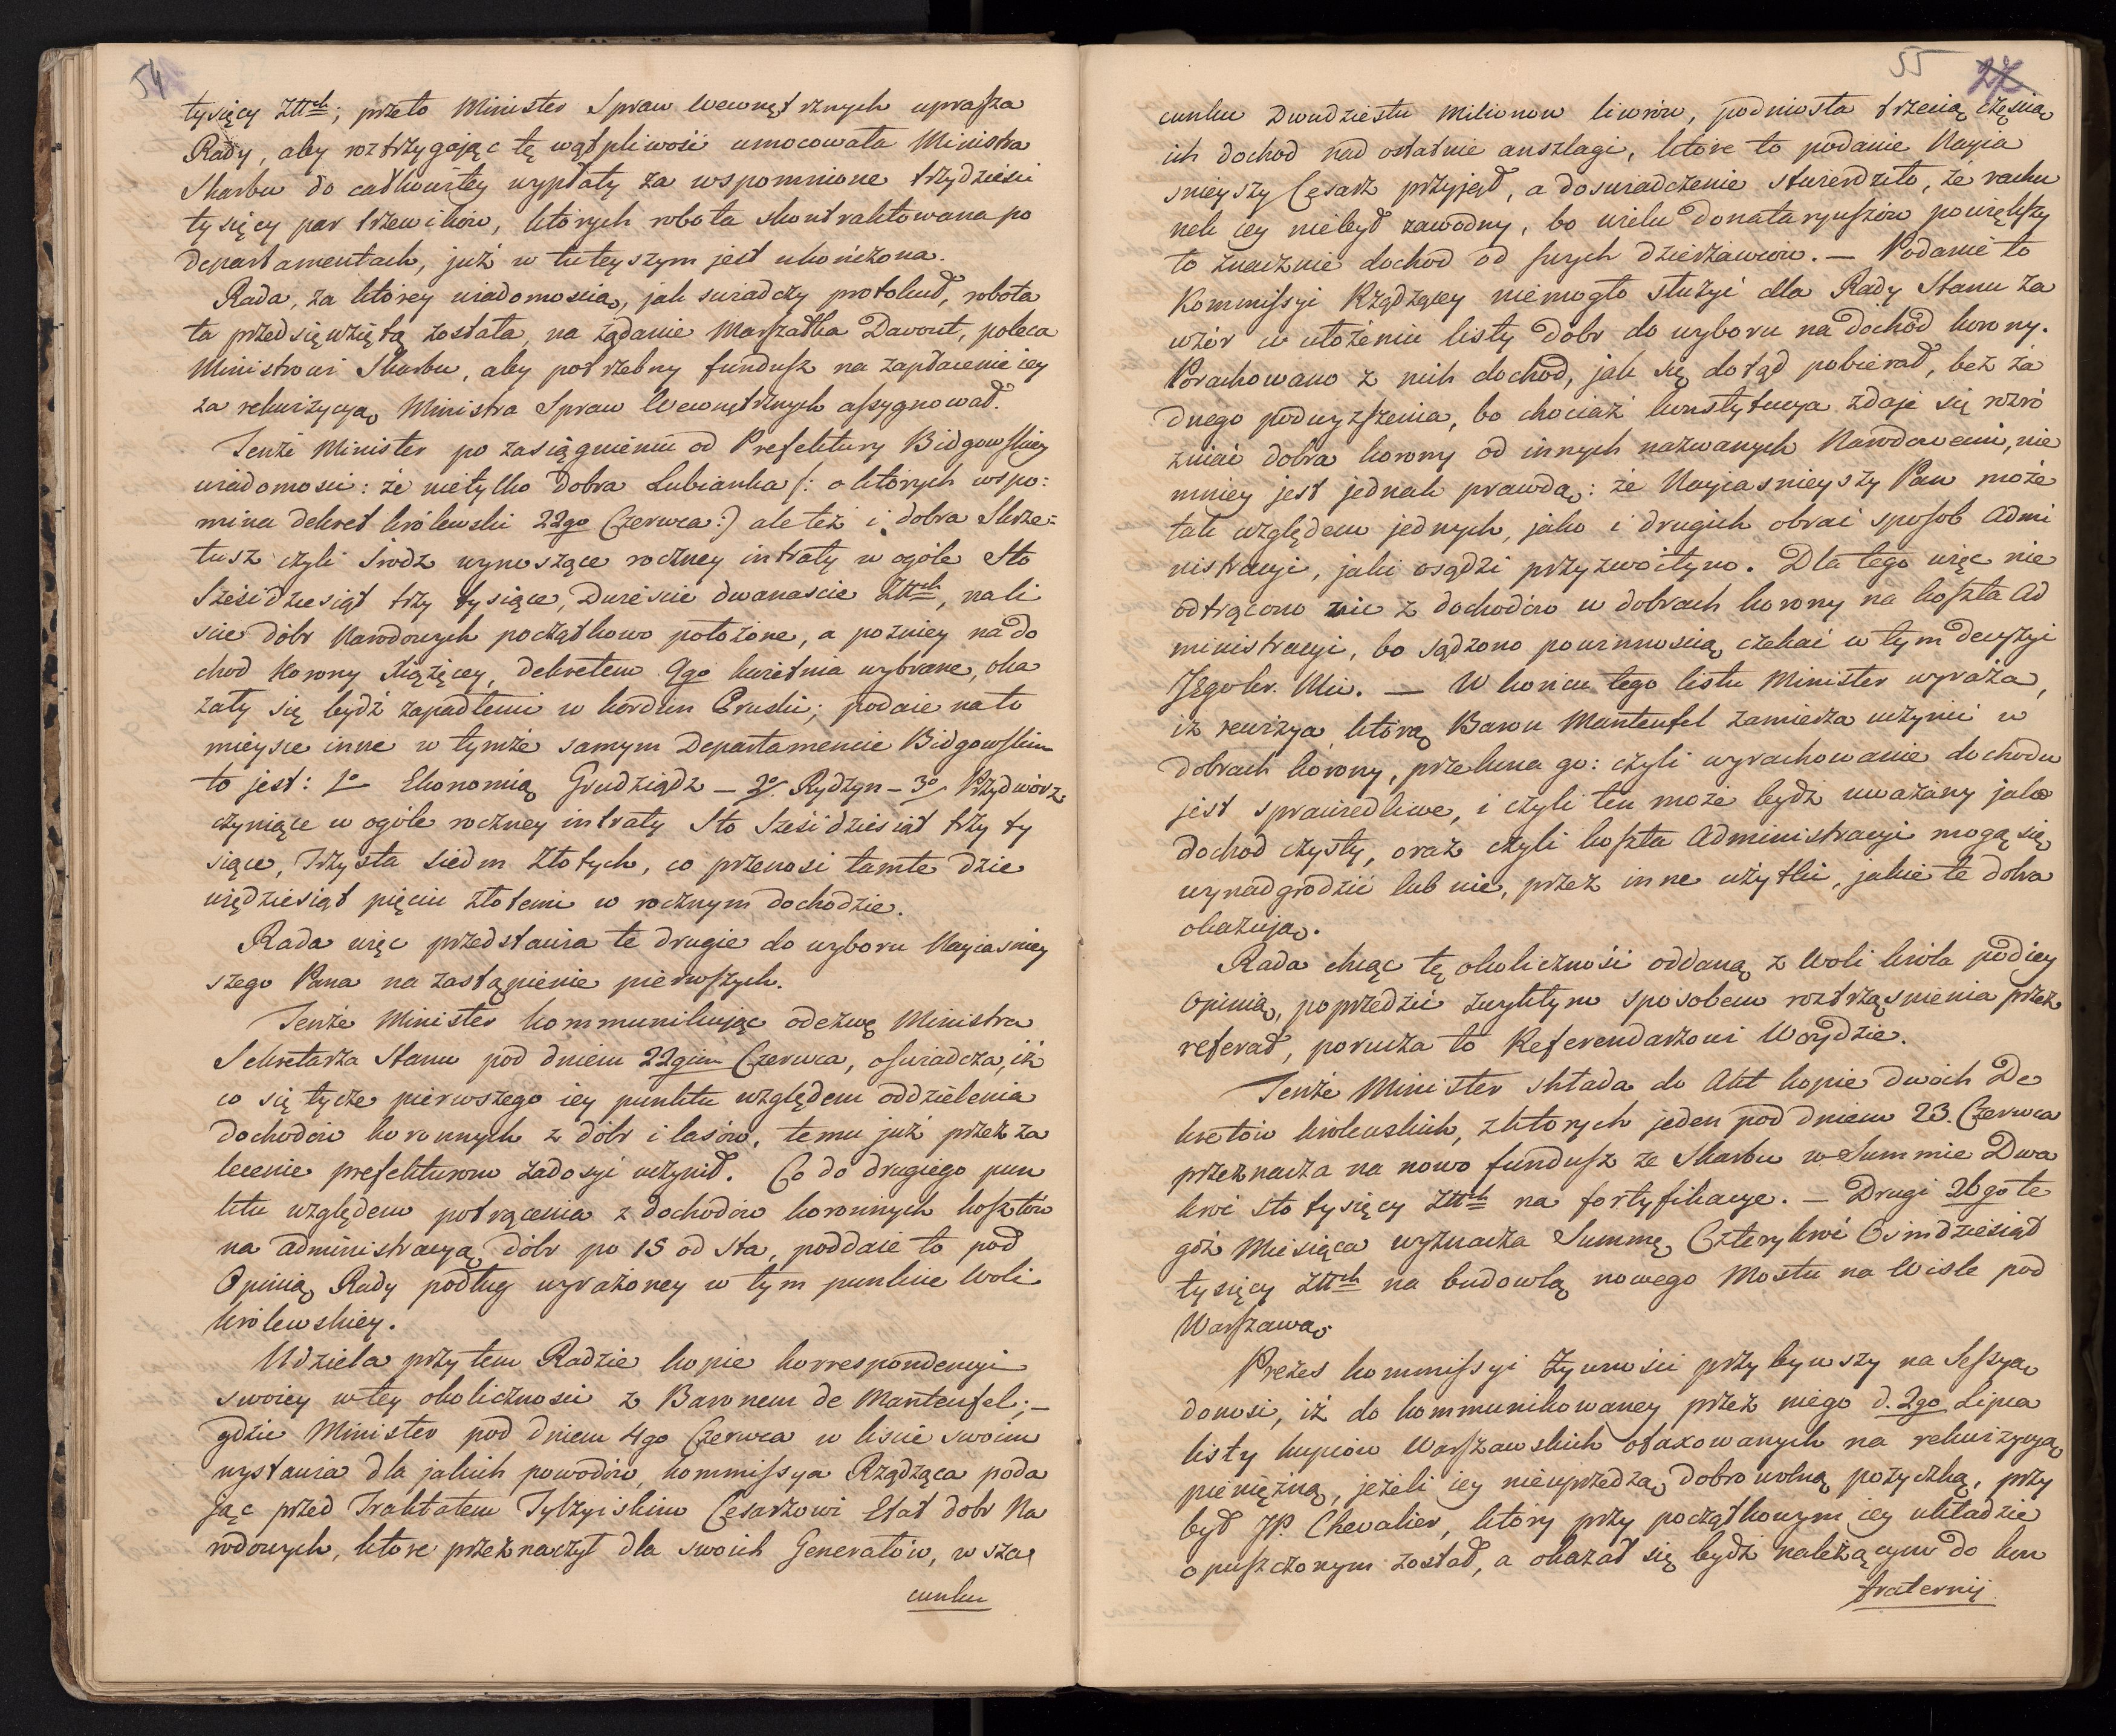 54
tysięcy Złłch; przeto Minister Spraw Wewnętrznych uprasza
Rady, aby roztrzygając tę wątpliwość umocowała Ministra
Skarbu do całkowitey wypłaty za wspomnione trzydzieści
tysięcy par trzewików, których robota skontraktowana po
departamentach, już w tuteyszym jest ukończona.
Rada, za którey wiadomością, jak świadczy protokuł, robota
ta przedsięwziętą została, na żądanie Marszałka Davout, poleca
Ministrowi Skarbu, aby potrzebny fundusz na zapłacenie iey
za rekwizycyą Ministra Spraw Wewnętrznych assygnował.
Tenże Minister po zasiągnieniu od Prefektury Bidgowskiey
wiadomosci: że nietylko dobra Lubianka (: o których wspo:
mina dekret królewski 22go Czerwca:) ale też i dobra Skrze:
tusz czyli Srodz wynoszące roczney intraty w ogóle Sto
Sześćdziesiąt trzy tysiące, Dwieście dwanascie Złłch, na li
scie dóbr Narodowych początkowo położone, a pozniey na do
chod Korony Xiążęcey, dekretem 9go kwietnia wybrane, oka
zały się bydź zapadłemi w kordon Pruski; podaie na to
mieysce inne w tymże samym Departamencie Bidgowskim
to jest: 1o Ekonomią Grudziądz – 2o Rydzyn – 3o Przydwórz
czyniące w ogóle roczney intraty Sto Sześćdziesiąt trzy ty
siące, Trzysta siedm Złotych, co przenosi tamte dzie
więdziesiąt pięciu złotemi w rocznym dochodzie.
Rada więc przedstawia te drugie do wyboru Nayiasniey
szego Pana na zastąpienie pierwszych.
Tenże Minister kommunikując odezwę Ministra
Sekretarza Stanu pod dniem 22gim Czerwca, oświadcza, iż
co się tycze pierwszego iey punktu względem oddzielenia
dochodów koronnych z dóbr i lasów, temu już przez za
lecenie prefekturom zadosyć uczynił. Co do drugiego pun
ktu względem potrącenia z dochodów koronnych kosztów
na administracyą dóbr po 15 od sta, poddaie to pod
Opinią Rady podług wyrażoney w tym punkcie Woli
królewskiey.
Udziela przytem Radzie kopie korrespondencyi
swoiey w tey okoliczności z Baronem de Manteufel; –
gdzie Minister pod dniem 4go Czerwca w liscie swoim
wystawia dla jakich powodów, kommissya Rządząca poda
jąc przed Traktatem Tylzyiskim Cesarzowi Etat dobr Na
rodowych, które przeznaczył dla swoich Generałów, w sza
cunku
55
27
cunku Dwudziestu Milionow liwrów, podniosła trzecią częścią
ich dochod nad ostatnie anszlagi, które to podanie Nayia
snieyszy Cesarz przyjął, a doswiadczenie stwierdziło, że rachu
nek iey niebył zawodny, bo wielu donataryuszów powiększy
ło znacznie dochod od swych dzierżawców. – Podanie to
Kommissyi Rządzącey niemogło służyć dla Rady Stanu za
wzór w ułożeniu listy dóbr do wyboru na dochód korony.
Porachowano z nich dochod, jak się dotąd pobierał, bez ża
dnego podwyższenia, bo chociaż konstytucya zdaje się rozró
żniać dobra korony od innych nazwanych Narodowemi, nie
mniey jest jednak prawdą: że Nayiasnieyszy Pan może
tak względem jednych, jako i drugich obrać sposob Admi
nistracyi, jaki osądzi przyzwoitym. Dla tego więc nie
odtrącono nic z dochodów w dobrach korony na koszta Ad
ministracyi, bo sądzono powinnością czekać w tym decyzyi
JEgo kr. Mci. – W końcu tego listu Minister wyraża,
iż rewizya, którą Baron Manteufel zamierza uczynić w
dobrach korony, przekona go: czyli wyrachowanie dochodu
jest sprawiedliwe, i czyli ten może bydź uważany jako
dochod czysty, oraz czyli koszta Administracyi mogą się
wynadgrodzić lub nie, przez inne użytki, jakie te dobra
okazują.
Rada chcąc tę okoliczność oddaną z Woli króla pod iey
Opinią, poprzedzić zwykłym sposobem roztrząsnienia przez
referat, porucza to Referendarzowi Woydzie.
Tenże Minister składa do Akt kopie dwóch De
kretów królewskich, z których jeden pod dniem 23. Czerwca
przeznacza na nowo fundusz ze Skarbu w Summie Dwa
kroć sto tysięcy Złłch na fortyfikacye. – Drugi 26go te
goż Miesiąca wyznacza Summę Czterykroć Osmdziesiąt
tysięcy Złłch na budowlą nowego Mostu na Wisle pod
Warszawą.
Prezes kommissyi żywności przybywszy na Sessyą
donosi, iż do kommunikowaney przez niego d. 2go Lipca
listy kupców Warszawskich otaxowanych na rekwizycyą
pieniężną, jeżeli iey nieuprzedzą dobrowolną pożyczką, przy
był JP. Chevalier, który przy początkowym iey układzie
opuszczonym został, a okazał się bydź należącym do kon
fraternij